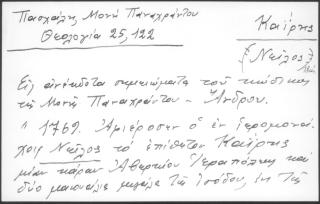 Πασχάλη, Μονή Παναχράντου
Θεολογία 25, 122
Καΐρης
Νεῖλος
Εἰς ἀνέκδοτα σημειώματα τοῦ κώδικος
τῆς Μονῆς Παναχράντου - Ἄνδρου.
1769. Ἀφιέρωσεν ὁ ἐν ἱερομονά-
χοις Νεῖλος τὸ ἐπίθετον Καΐρης
μίαν κάραν Ἀβερκίου Ἱεραπόλεως καὶ
δύο μανουάλια μεγάλα τῆς Εἰσόδου, ἐκ τῆς